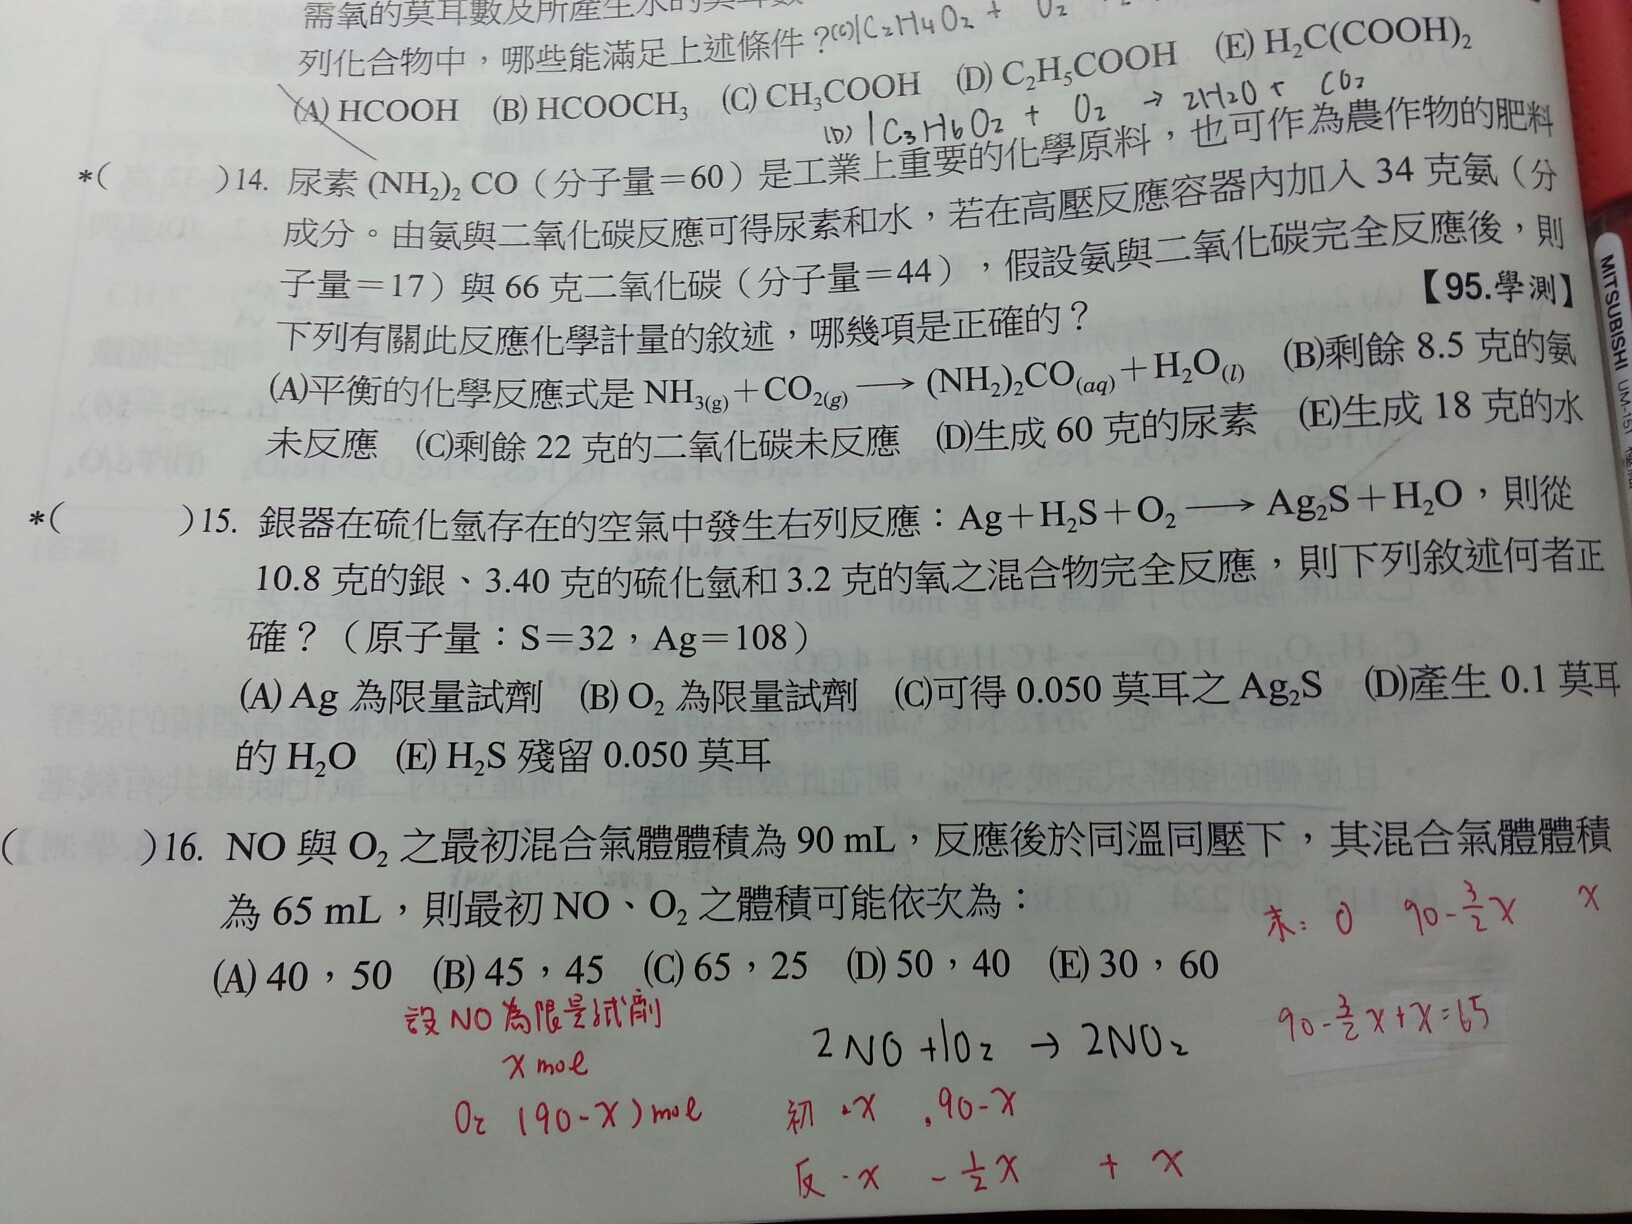 需氧的莫耳數及所產生水的莫耳數
列化合物中，哪些能滿足上述條件？(C)1C₂H₄O₂ + O₂
(A) HCOOH (B) HCOOCH₃ (C) CH₃COOH (D) C₂H₅COOH (E) H₂C(COOH)₂
(D) 1C₃H₆O₂ + O₂ → 2H₂O + CO₂
*( )14. 尿素 (NH₂)₂ CO（分子量＝60）是工業上重要的化學原料，也可作為農作物的肥料
成分。由氨與二氧化碳反應可得尿素和水，若在高壓反應容器內加入 34 克氨（分
子量＝17）與 66 克二氧化碳（分子量＝44），假設氨與二氧化碳完全反應後，則
下列有關此反應化學計量的敘述，哪幾項是正確的？ 【95.學測】
(A)平衡的化學反應式是 NH₃(g)＋CO₂(g) ⟶ (NH₂)₂CO(aq)＋H₂O(l) (B)剩餘 8.5 克的氨
未反應 (C)剩餘 22 克的二氧化碳未反應 (D)生成 60 克的尿素 (E)生成 18 克的水
*( )15. 銀器在硫化氫存在的空氣中發生右列反應：Ag＋H₂S＋O₂ ⟶ Ag₂S＋H₂O，則從
10.8 克的銀、3.40 克的硫化氫和 3.2 克的氧之混合物完全反應，則下列敘述何者正
確？（原子量：S＝32，Ag＝108）
(A) Ag 為限量試劑 (B) O₂ 為限量試劑 (C)可得 0.050 莫耳之 Ag₂S (D)產生 0.1 莫耳
的 H₂O (E) H₂S 殘留 0.050 莫耳
( )16. NO 與 O₂ 之最初混合氣體體積為 90 mL，反應後於同溫同壓下，其混合氣體體積
為 65 mL，則最初 NO、O₂ 之體積可能依次為：
末: 0 90-3/2x x
(A) 40，50 (B) 45，45 (C) 65，25 (D) 50，40 (E) 30，60
設 NO 為限量試劑
90-3/2x+x=65
x mol
2NO+1O₂ → 2NO₂
O₂ (90-x) mol
初 x 90-x
反 -x -1/2x + x
MITSUBISHI UM-151